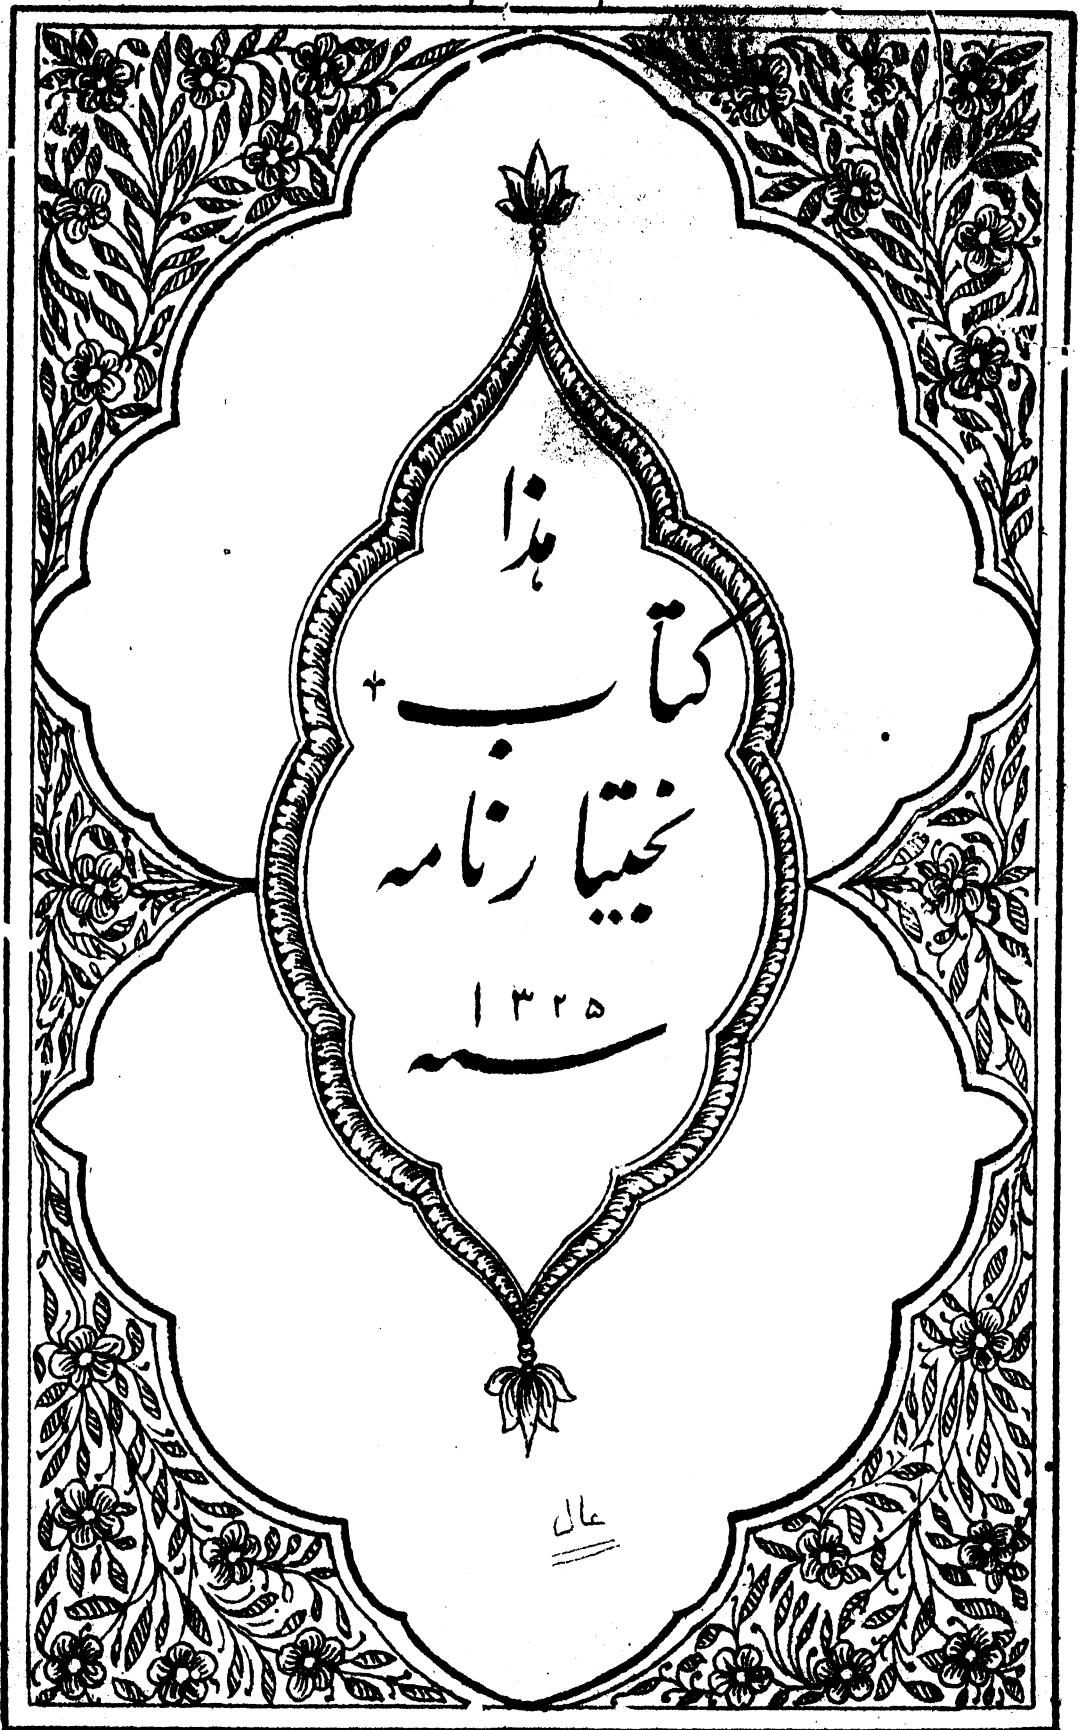 هذا
کتاب
بختیار نامه
۱۳۲۵
سنه
عال